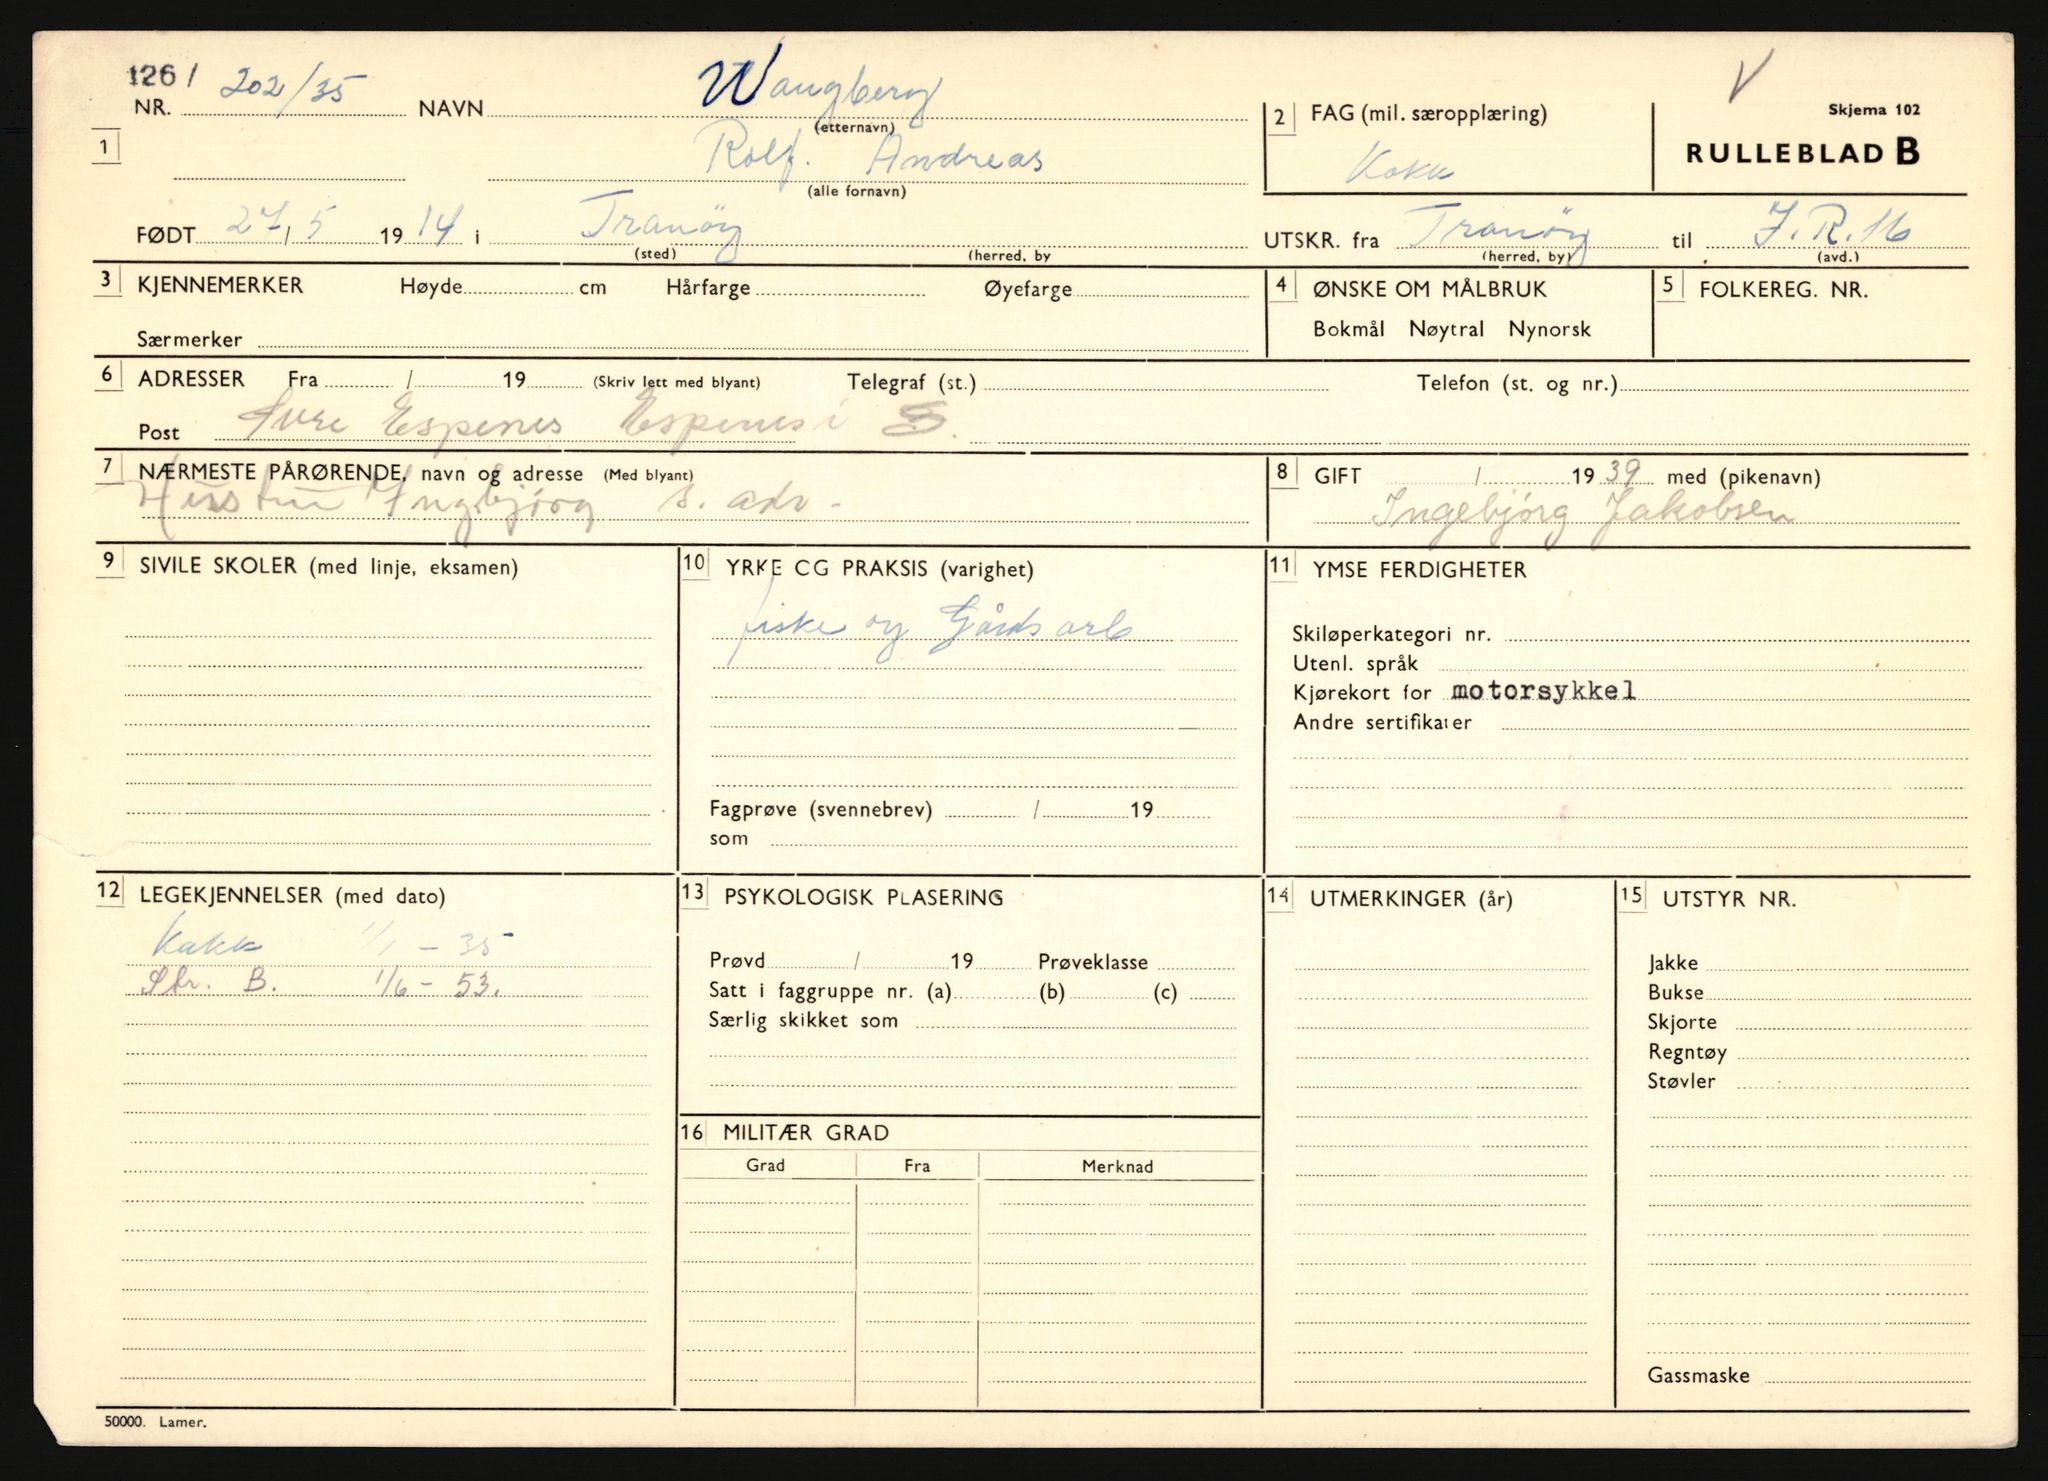 126 / 202/35
NR. NAVN Wangberg
(etternavn)
1
Rolf. Andreas
(alle fornavn)
FØDT 27/5 1914 i Tranöy
(sted) (herred, by
2 FAG (mil. særopplæring)
Kokk
V
Skjema 102
RULLEBLAD B
UTSKR. fra Tranöy til J.R.16
(herred, by) (avd.)
3 KJENNEMERKER Høyde cm Hårfarge Øyefarge
Særmerker
4 ØNSKE OM MÅLBRUK
Bokmål Nøytral Nynorsk
5 FOLKEREG. NR.
6 ADRESSER Fra / 19 (Skriv lett med blyant) Telegraf (st.) Telefon (st. og nr.)
Post Espenes Espenes i S.
7 NÆRMESTE PÅRØRENDE, navn og adresse (Med blyant)
Hustru Ingebjørg s. adr.
8 GIFT / 1939 med (pikenavn)
Ingebjørg Jakobsen
9 SIVILE SKOLER (med linje, eksamen)
10 YRKE CG PRAKSIS (varighet)
fiske og Gårds arb
Fagprøve (svennebrev) / 19
som
11 YMSE FERDIGHETER
Skiløperkategori nr.
Utenl. språk
Kjørekort for motorsykkel
Andre sertifikater
12 LEGEKJENNELSER (med dato)
Kokk 1/1 - 35
Str. B. 1/6 - 53.
13 PSYKOLOGISK PLASERING
Prøvd / 19 Prøveklasse
Satt i faggruppe nr. (a) (b) (c)
Særlig skikket som
14 UTMERKINGER (år)
15 UTSTYR NR.
Jakke
Bukse
Skjorte
Regntøy
Støvler
Gassmaske
16 MILITÆR GRAD
Grad Fra Merknad
50000. Lamer.